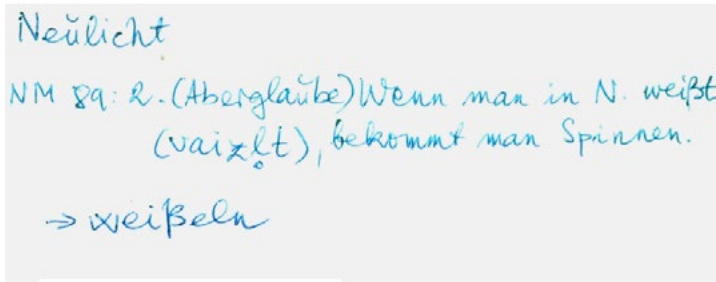 Neŭlicht
NM 89: 2. (Aberglaŭbe) Wenn man in N. weißt
(vaizl̥t), bekommt man Spinnen.
→ weißeln